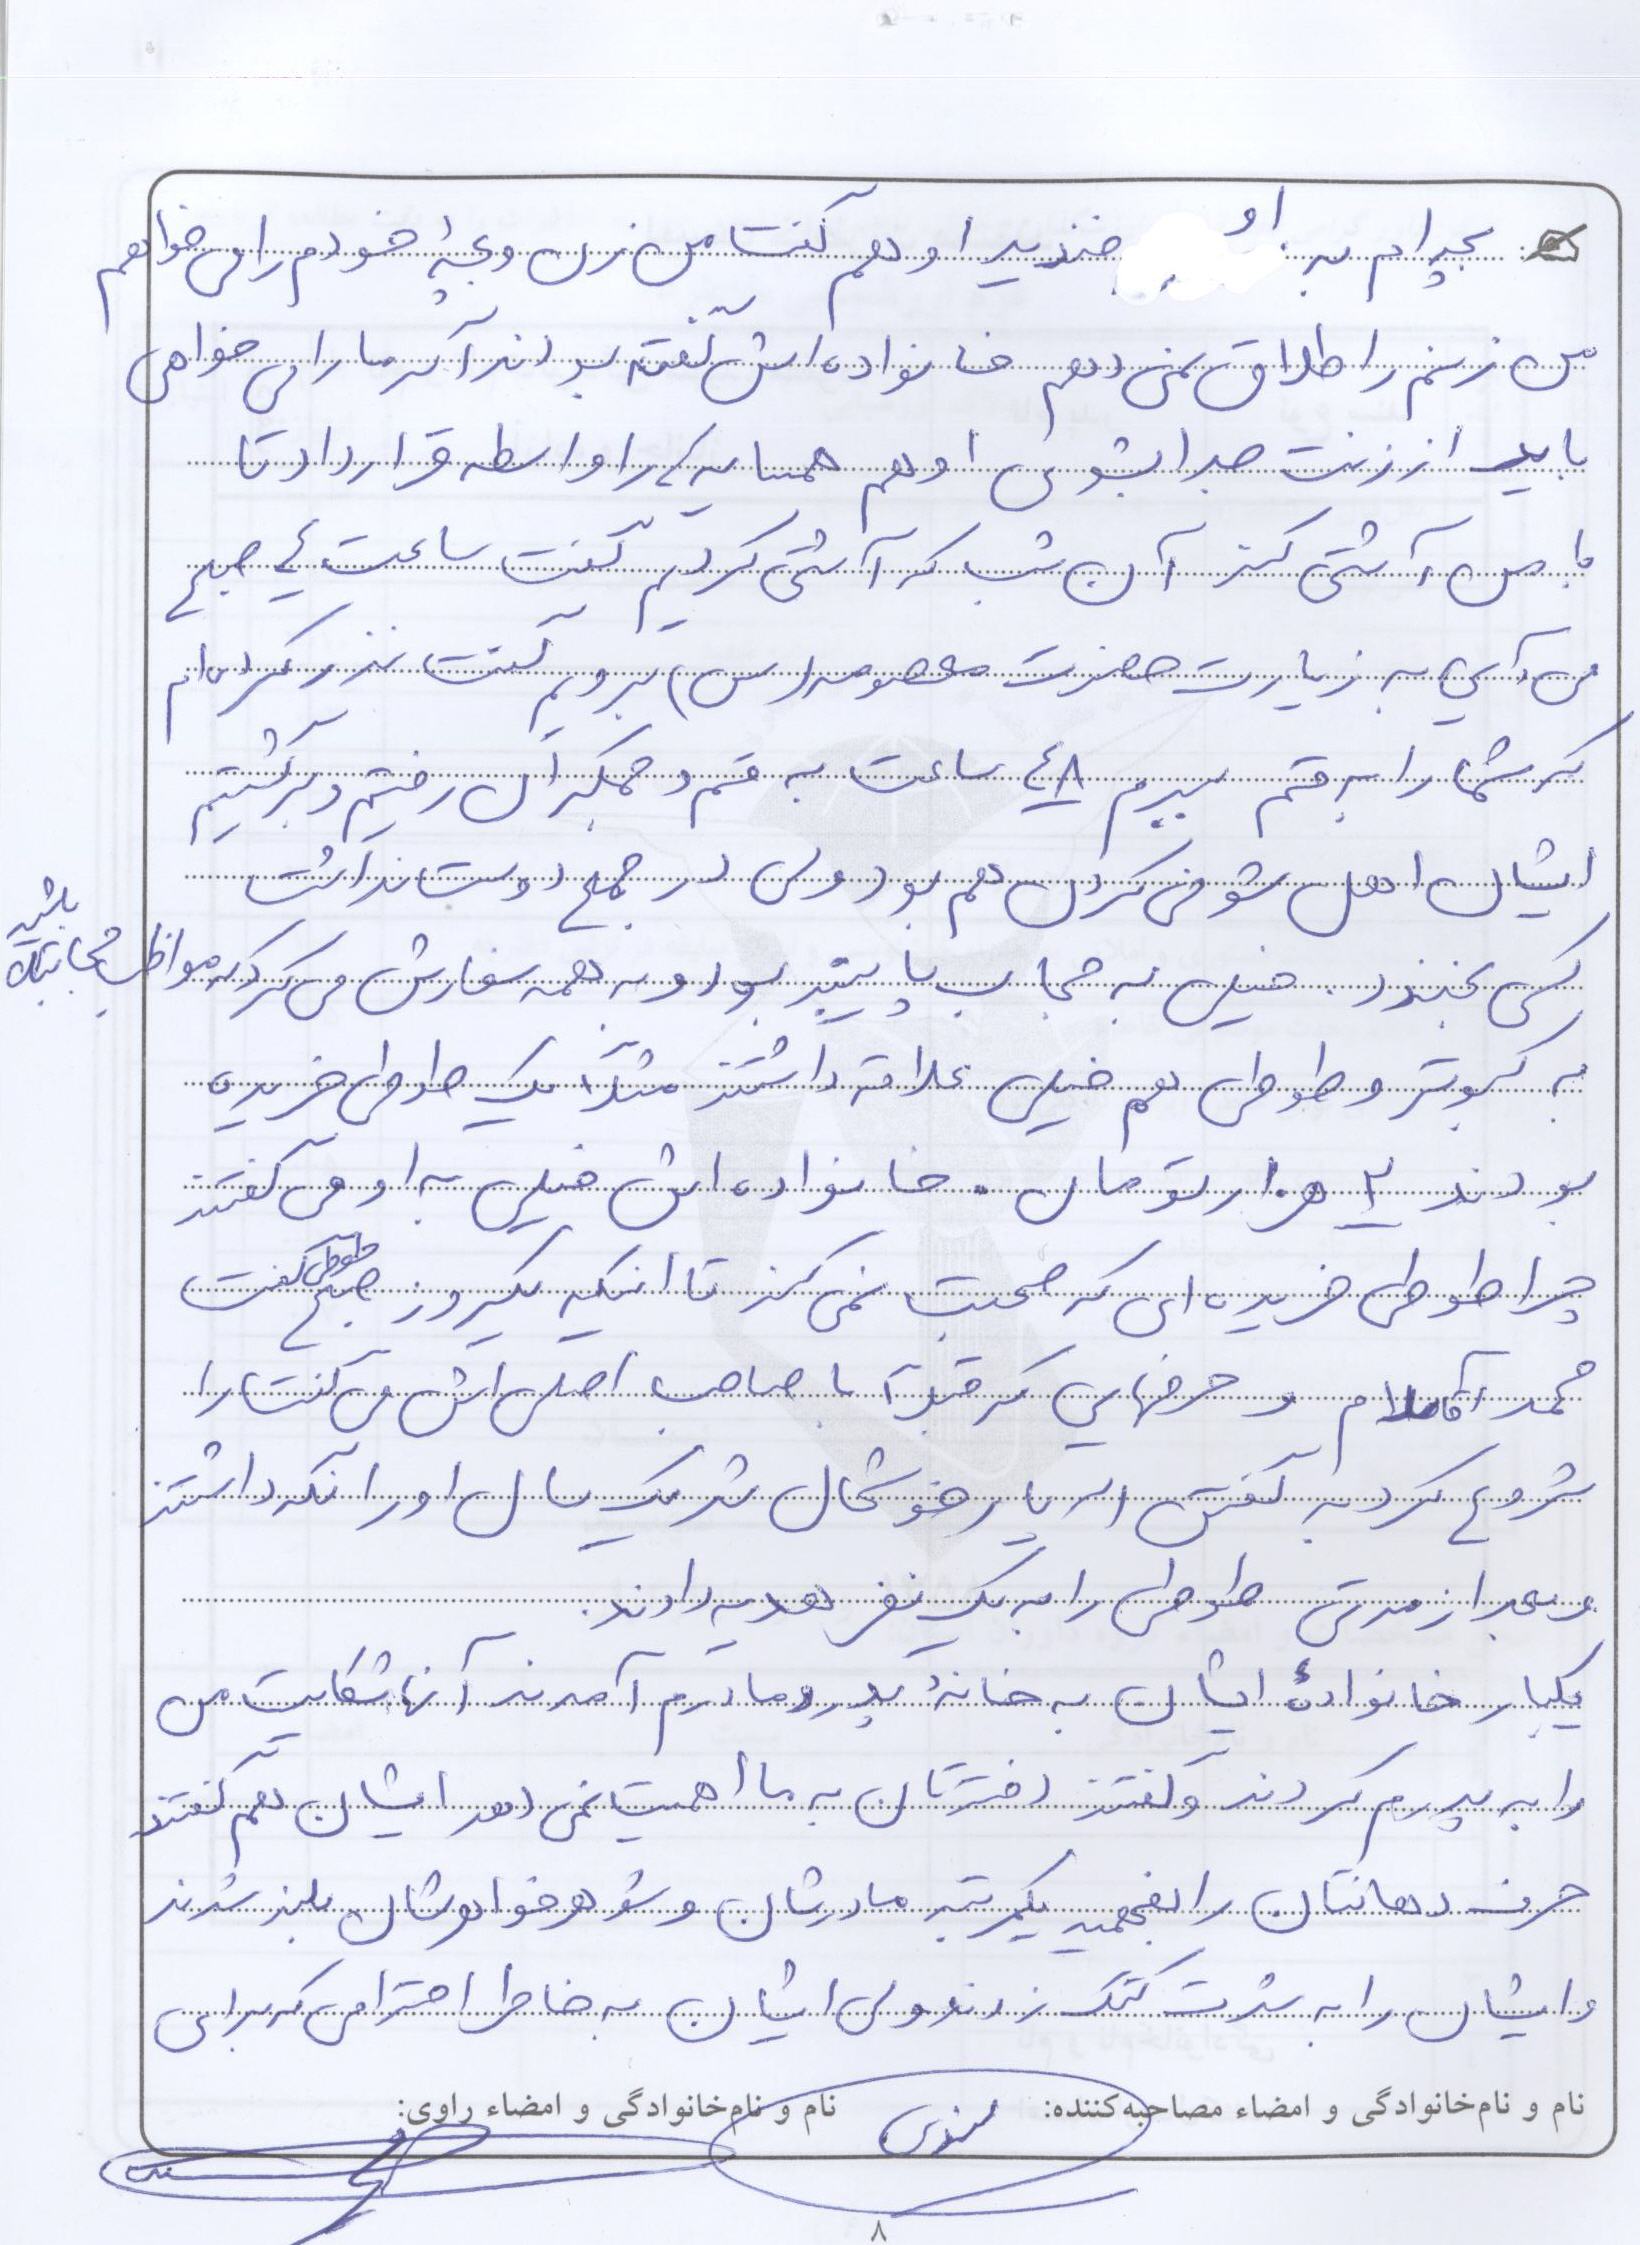 بچه‌ام به او خندید او هم گفت من زن و بچهٔ خودم را می خواهم
من زنم را طلاق نمی دهم خانواده اش گفته بودند اگر ما را می خواهی
باید از زنت جدا بشوی او هم همسایه را واسطه قرار داد تا
با من آشتی کند آن شب که آشتی کردیم گفت ساعت ۴ صبح
می آیی به زیارت حضرت معصومه (س) برویم گفت نذر کرده ام
که شما را به قم ببرم ۴۸ ساعت به قم و جمکران رفتیم و برگشتیم
ایشان اهل شوخی کردن هم بود ولی در جمع دوست نداشت
کسی بخندد. خیلی به حجاب پایبند بود و به همه سفارش می کرد که مواظب حجابتان باشید
به کبوتر و طوطی هم خیلی علاقه داشتند مثلاً یک طوطی خریده
بودند ۲ هزار تومان. خانواده اش خیلی به او می گفتند
چرا طوطی خریده ای که صحبت نمی کند تا اینکه یکروز صبح طوطی گفت
محمد آقا سلام و حرفهایی که قبلاً با صاحب اصلی اش می گفت را
شروع کرد به گفتن بسیار خوشحال شد یک سال او را نگه داشتند
و بعد از مدتی طوطی را به یک نفر هدیه دادند.
یکبار خانوادهٔ ایشان به خانهٔ پدر و مادرم آمدند آنها شکایت من
را به پدرم کردند و گفتند دخترتان به ما اهمیت نمی دهد ایشان هم گفتند
حرف دهانتان را بفهمید یکمرتبه مادرشان و شوهر خواهرشان بلند شدند
و ایشان را به شدت کتک زدند ولی ایشان به خاطر احترامی که برای
نام و نام‌خانوادگی و امضاء مصاحبه‌کننده: نام و نام‌خانوادگی و امضاء راوی:
۸